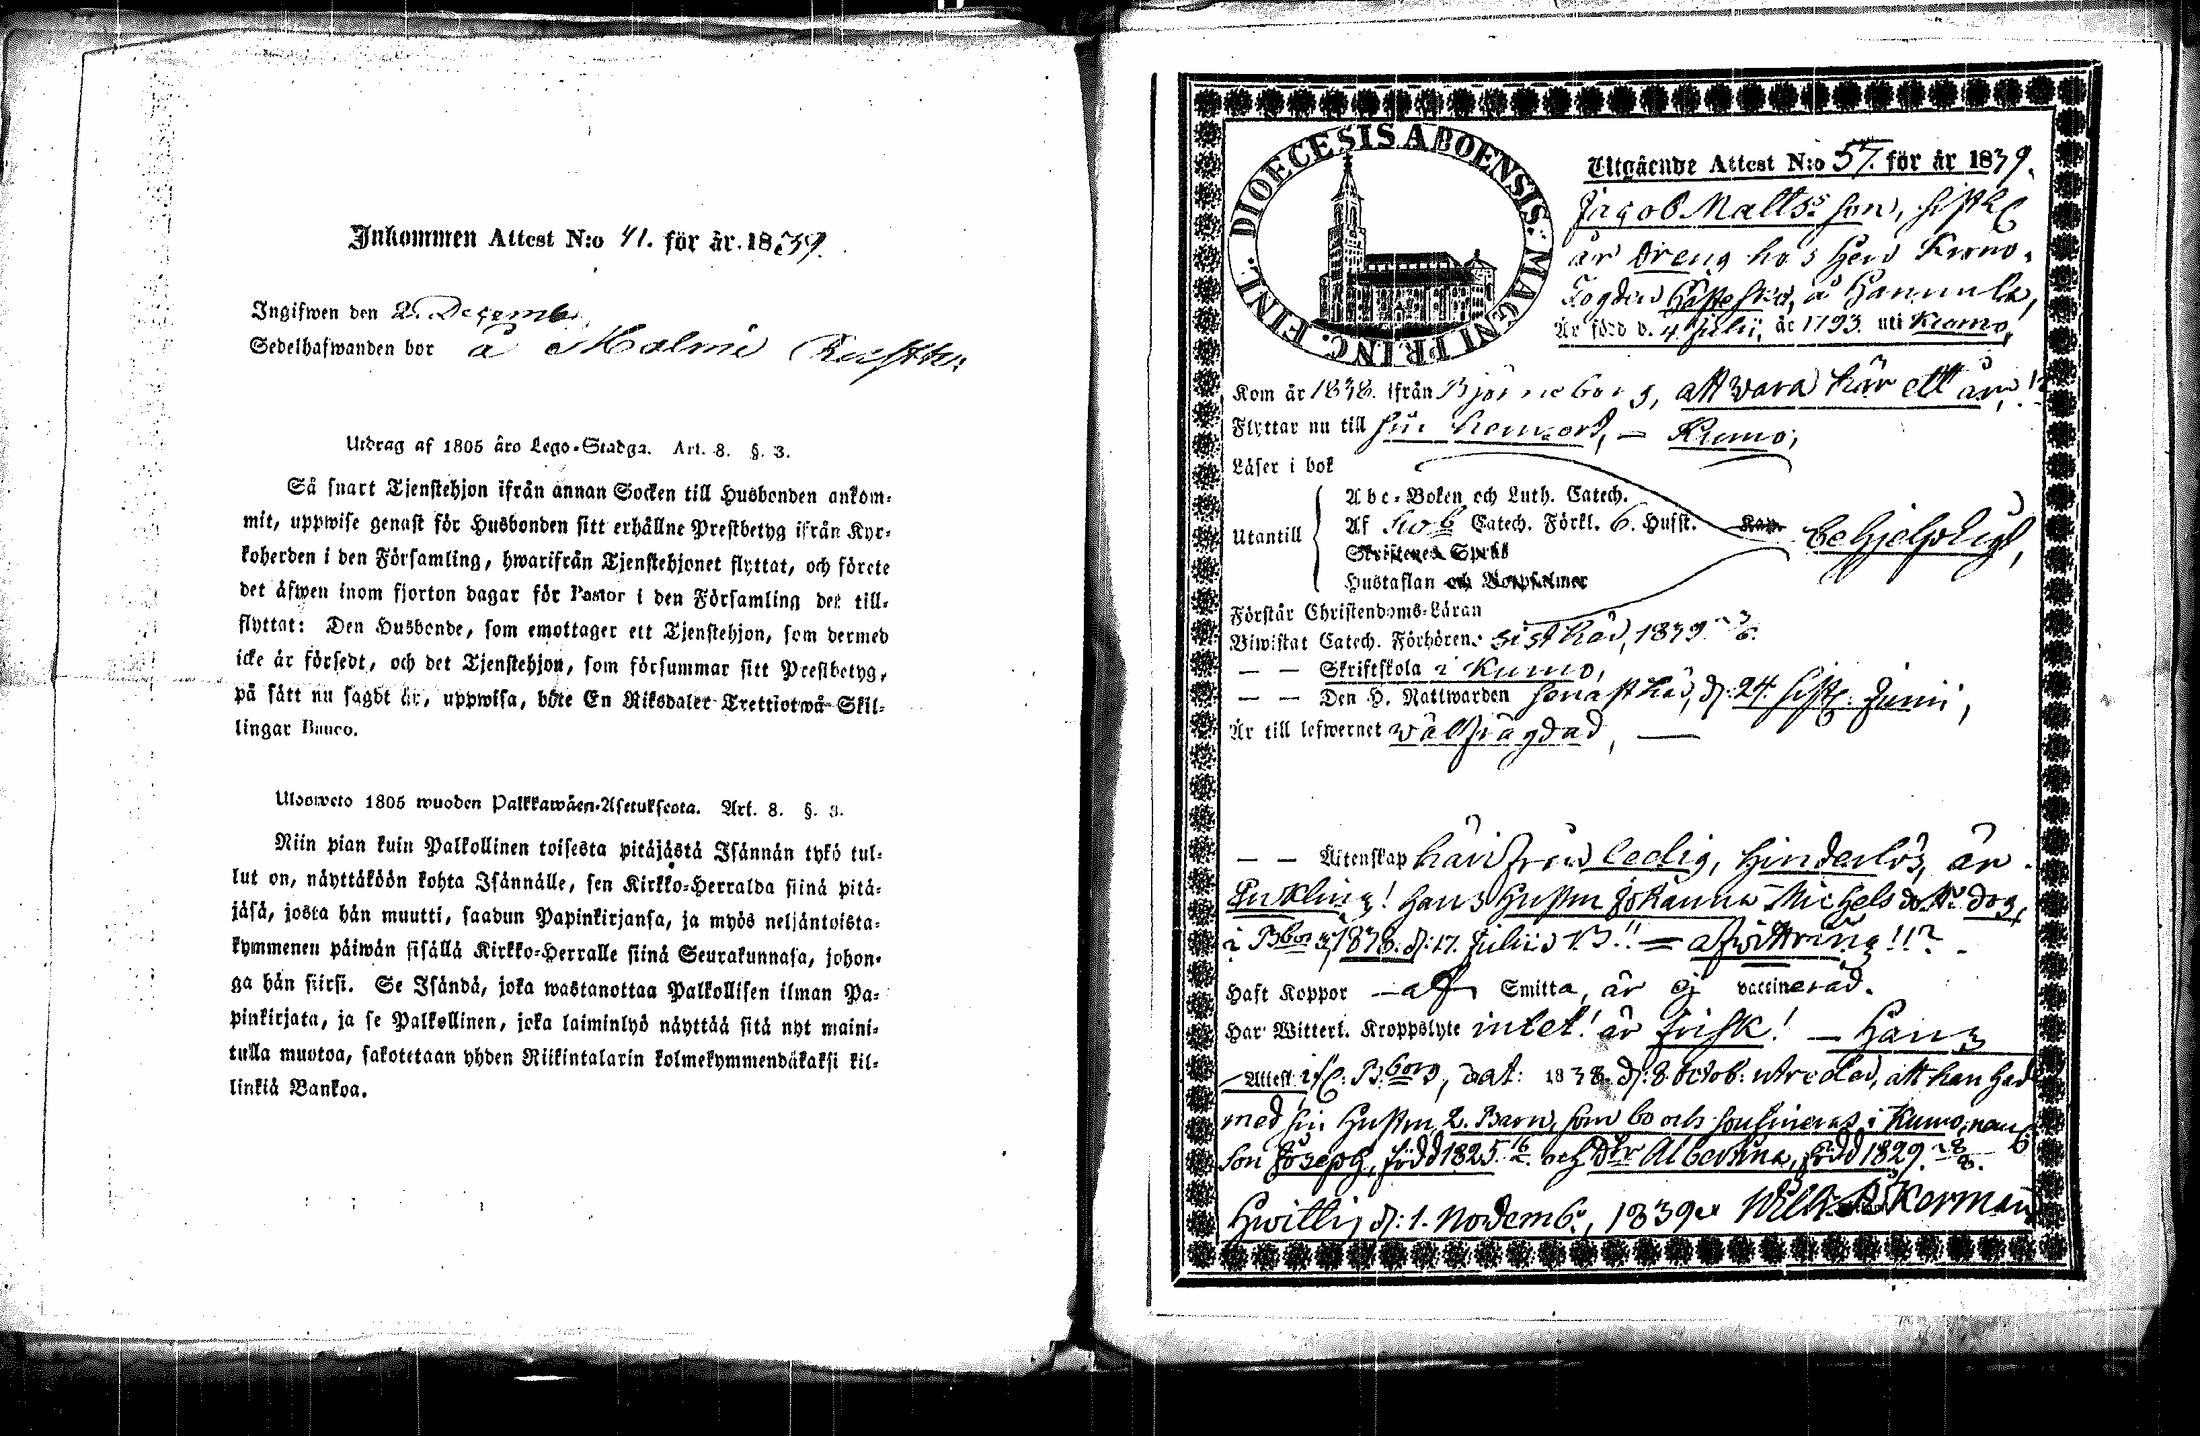 Inkommen Attest N:o 41. för år 1839.
Ingifwen den 2. Decemb.
Sedelhafwanden bor å Malmi
Utdrag af 1805 års Lego-Stadga. Art. 8. §. 3.
Så snart Tjenstehjon ifrån annan Socken till Husbonden ankom-
mit, uppwise genast för Husbonden sitt erhållne Prestbetyg ifrån Kyr-
koherden i den Församling, hwarifrån Tjenstehjonet flyttat, och förete
det äfwen inom fjorton dagar för Pastor i den Församling det till-
flyttat: Den Husbonde, som emottager ett Tjenstehjon, som dermed
icke är försedt, och det Tjenstehjon, som försummar sitt Prestbetyg,
på sätt nu sagdt är, uppwisa, böte En Riksdaler Trettiotwå Skil-
lingar Banco.
Ulosweto 1805 wuoden Palkkawäen-Asetuksesta. Art. 8. §. 3.
Niin pian kuin Palkollinen toisesta pitäjästä Isännän tykö tul-
lut on, näyttäköön kohta Isännälle, sen Kirkko-Herralda siinä pitä-
jäsä, josta hän muutti, saadun Papinkirjansa, ja myös neljäntoista-
kymmenen päiwän sisällä Kirkko-Herralle siinä Seurakunnasa, johon-
ga hän siirsi. Se Isändä, joka wastanottaa Palkollisen ilman Pa-
pinkirjata, ja se Palkollinen, joka laiminlyö näyttää sitä nyt maini-
tulla muotoa, sakotetaan yhden Riikintalarin kolmekymmendäkaksi kil-
linkiä Bankoa.
DIOECESIS ABOENSIS. MAGNI PRINC. FINL.
Utgående Attest N:o 57. för år 1839.
Jacob Matts son,
är Dreng hos Herr Krono-
Fogden å Hannula,
Är född d. 4 Julii, år 1793. uti Kumo,
Kom år 1838. ifrån Björneborg, att wara här ett år,
Flyttar nu till sin hemort, — Kumo,
Läser i bok
Utantill
Abc-Boken och Luth. Catech.
Af Catech. Förkl. 6. Hufst. Kap.
Skriftenes Språk
Hustaflan och Botpsalmer
behjelpligt,
Förstår Christendoms-Läran
Biwistat Catech. Förhören: sist här, 1839
— — Skriftskola i Kumo,
— — Den H. Nattwarden senast här, d. 24. Junii,
Är till lefwernet wälfrägdad, —
— — Äktenskap härifrån ledig, hinderlös, är
Enkling! hans Hustru Johanna Michels dotter dog,
i Bborg 1838. d. 17. Julii
Haft Koppor — af Smitta, är ej vaccinerad.
Har Witterl. Kroppslyte intet! är frisk! — Hans
Attest Bborg, dat: 1838. d. 8 Octob: utredes, att han had
med sin Hustru 2. Barn, som bo och i Kumo,
son Joseph, född 1825 och dtr Albertina, född 1829.
Hwittis, d: 1. Novemb., 1839. Åkerman